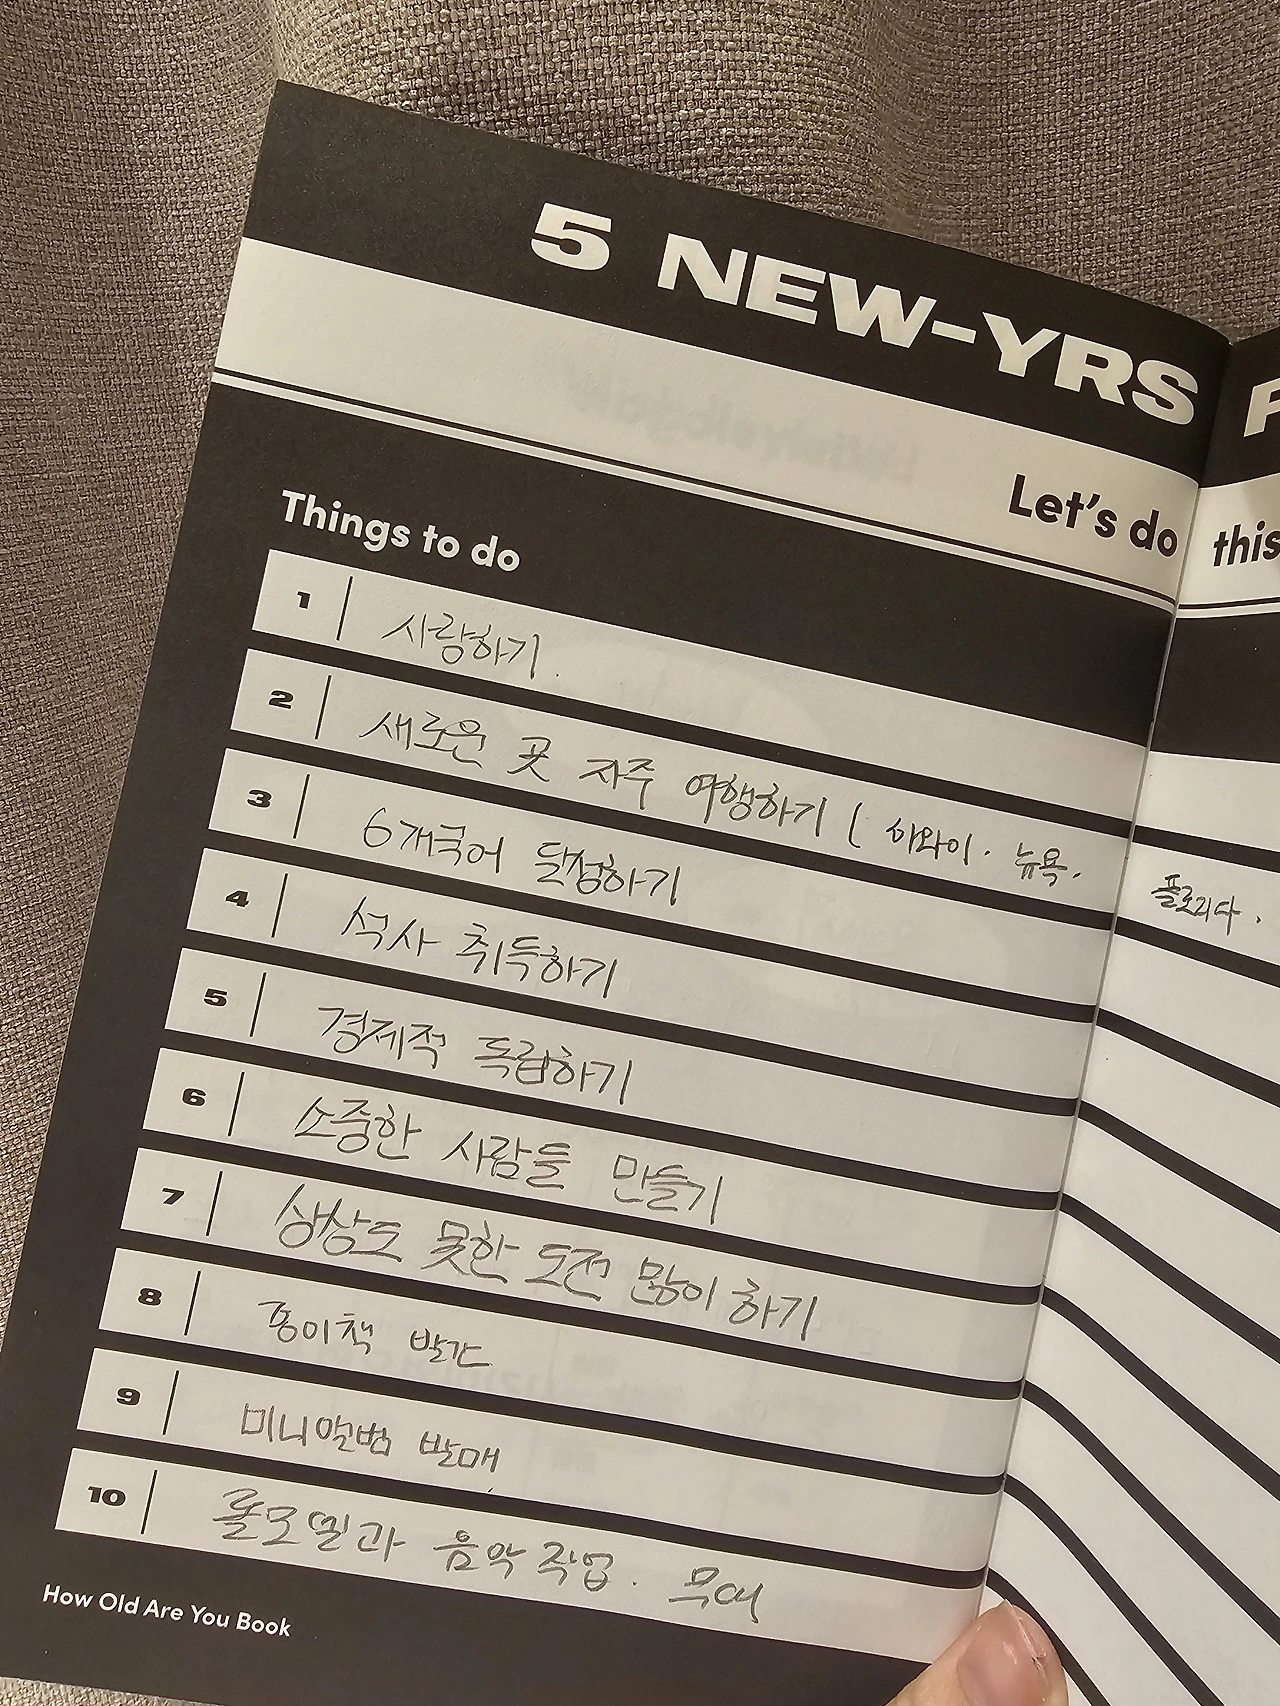 5 NEW-YRS
Let's do this
Things to do
1 사랑하기.
2 새로운 곳 자주 여행하기 ( 하와이. 뉴욕. 플로리다.
3 6개국어 달성하기
4 석사 취득하기
5 경제적 독립하기
6 소중한 사람들 만들기
7 상상도 못한 도전 많이 하기
8 종이책 발간
9 미니앨범 발매
10 폴모밀과 음악 작업. 무대
How Old Are You Book